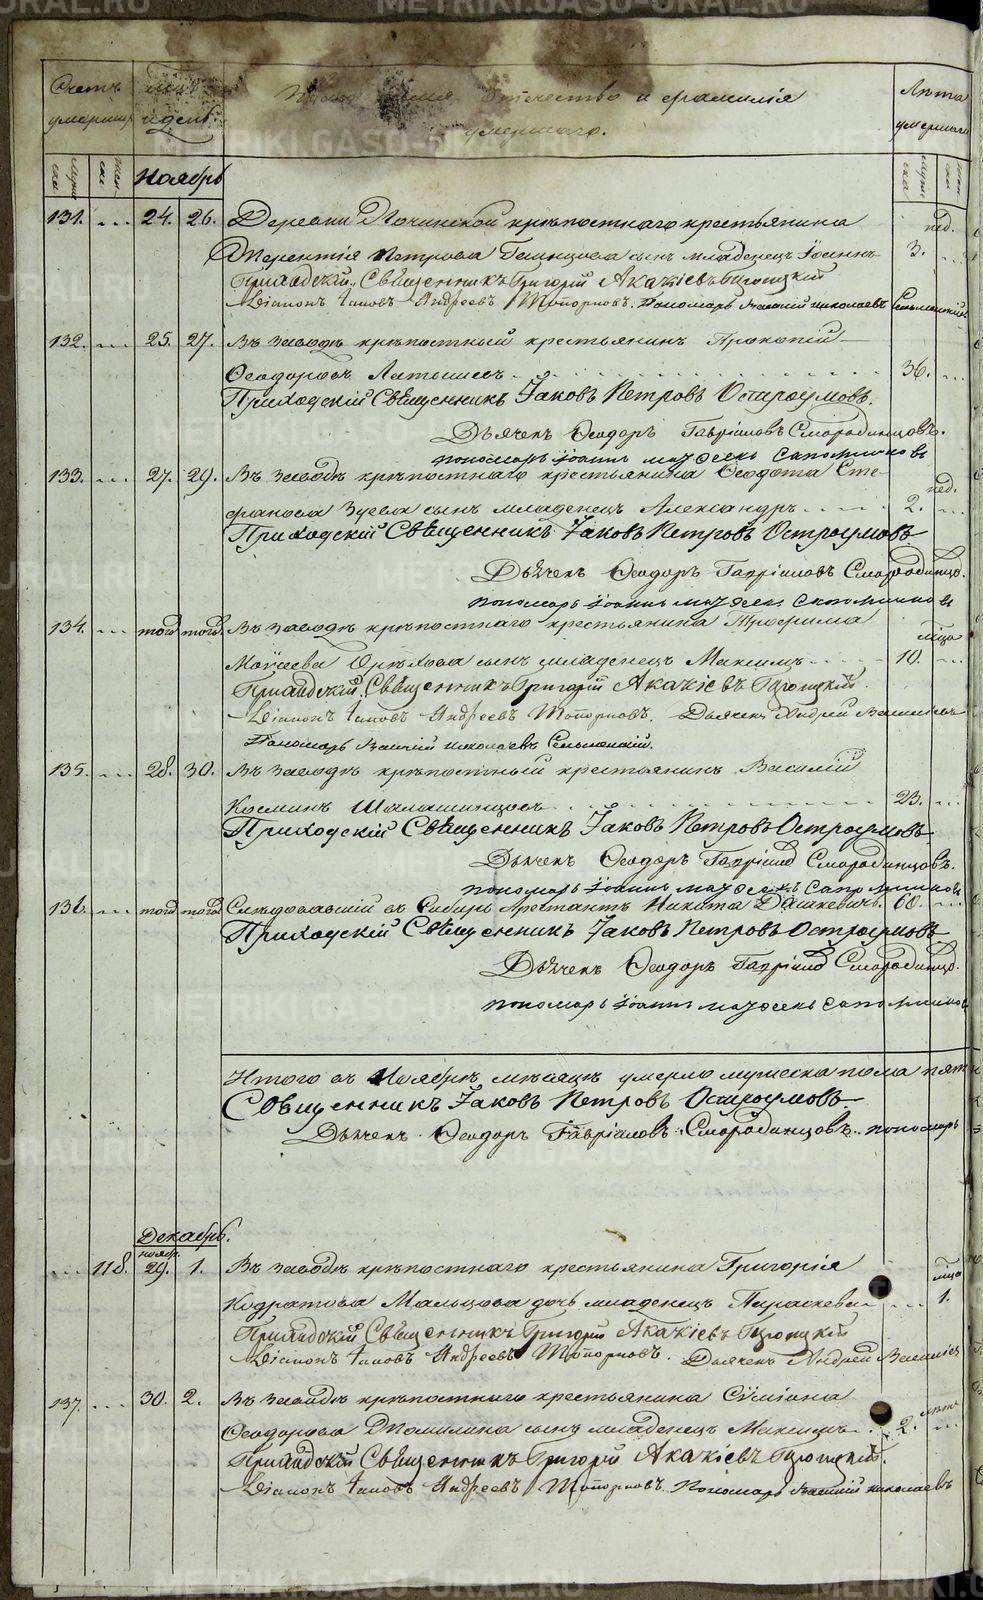 Счетъ умершихъ
мѣс. и день.
Званіе, имя, Отечество и фамилія
умершаго.
Лѣта умершаго
Ноябрь
131. ... 24. 26. Деревни крѣпостнаго крестьянина
Терентія Петрова сынъ младенецъ Іоаннъ 3. нед.
Приходскій Священникъ Григорій Акакіевъ
Діаконъ Іаковъ Андреевъ Топорковъ. Пономарь Николаевъ
132. ... 25. 27. Въ заводѣ крѣпостный крестьянинъ Прокопій
Ѳеодоровъ Латышевъ 36. ...
Приходскій Священникъ Іаковъ Петровъ Остроумовъ.
Дьячекъ Ѳеодоръ Гавріиловъ Смородинцовъ.
пономарь Іоаннъ Сапожниковъ
133. ... 27. 29. Въ заводѣ крѣпостнаго крестьянина Ѳеодота Сте-
фанова Зуева сынъ младенецъ Александръ 2. нед.
Приходскій Священникъ Іаковъ Петровъ Остроумовъ
Дьячекъ Ѳеодоръ Гавріиловъ Смородинцо.
пономарь Іоаннъ Сапожниковъ
134. ... того того Въ заводѣ крѣпостнаго крестьянина Трофима
Моисеева Орѣхова сынъ младенецъ Максимъ 10. мѣся.
Приходскій Священникъ Григорій Акакіевъ
Діаконъ Іаковъ Андреевъ Топорковъ. Дьячекъ Андрей Васильевъ
Пономарь Николаевъ
135. ... 28. 30. Въ заводѣ крѣпостный крестьянинъ Василій
Косминъ 23. ...
Приходскій Священникъ Іаковъ Петровъ Остроумовъ
Дьячекъ Ѳеодоръ Гавріилов Смородинцовъ.
пономарь Іоаннъ Сапожниковъ
136. ... того того Слѣдовавшій въ Сибирь Арестантъ Никита Дашкевичъ. 60. ...
Приходскій Священникъ Іаковъ Петровъ Остроумовъ
Дьячекъ Ѳеодоръ Гавріилов Смородинцо.
пономарь Іоаннъ Сапожников
Итого въ Ноябрѣ мѣсяцѣ умерло мужеска пола пят
Священникъ Іаковъ Петровъ Остроумовъ
Дьячекъ Ѳеодоръ Гавріиловъ Смородинцовъ. пономарь
Декабрь.
ноябр.
... 118. 29. 1. Въ заводѣ крѣпостнаго крестьянина Григорія
Кодратова Мальцова дочь младенецъ Параскева 1. мѣся
Приходскій Священникъ Григорій Акакіевъ
Діаконъ Іаковъ Андреевъ Топорковъ. Дьячекъ Андрей Василіев
137. ... 30. 2. Въ заводѣ крѣпостнаго крестьянина Сѵміона
Ѳеодорова сынъ младенецъ Максимъ 2. лѣтъ
Приходскій Священникъ Григорій Акакіевъ
Діаконъ Іаковъ Андреевъ Топорковъ. Пономарь Николаевъ
METRIKI.GASU-URAL.RU